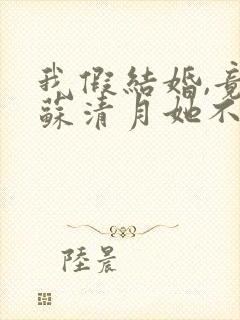 我假結婚,竟
蘇清月她不
陸晨